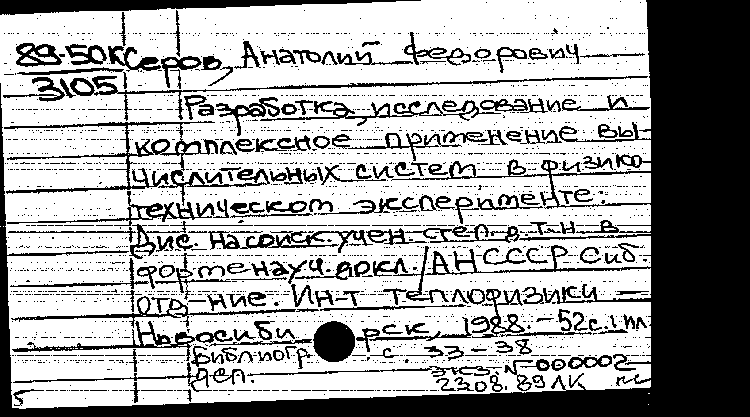 89-50К Серов, Анатолий Федорович
3105
Разработка, исследование и
комплексное применение вы-
числительных систем в физико
техническом эксперименте:
Дис. на соиск. учен. степ. д.т.н. в
форме науч. докл. / АН СССР Сиб.
отд-ние. Ин-т теплофизики —
Новосибирск, 1988. - 52с. 1 ил
Библиогр. : с. 33-38
Деп. экз. N-000002
2308. 89 ЛК